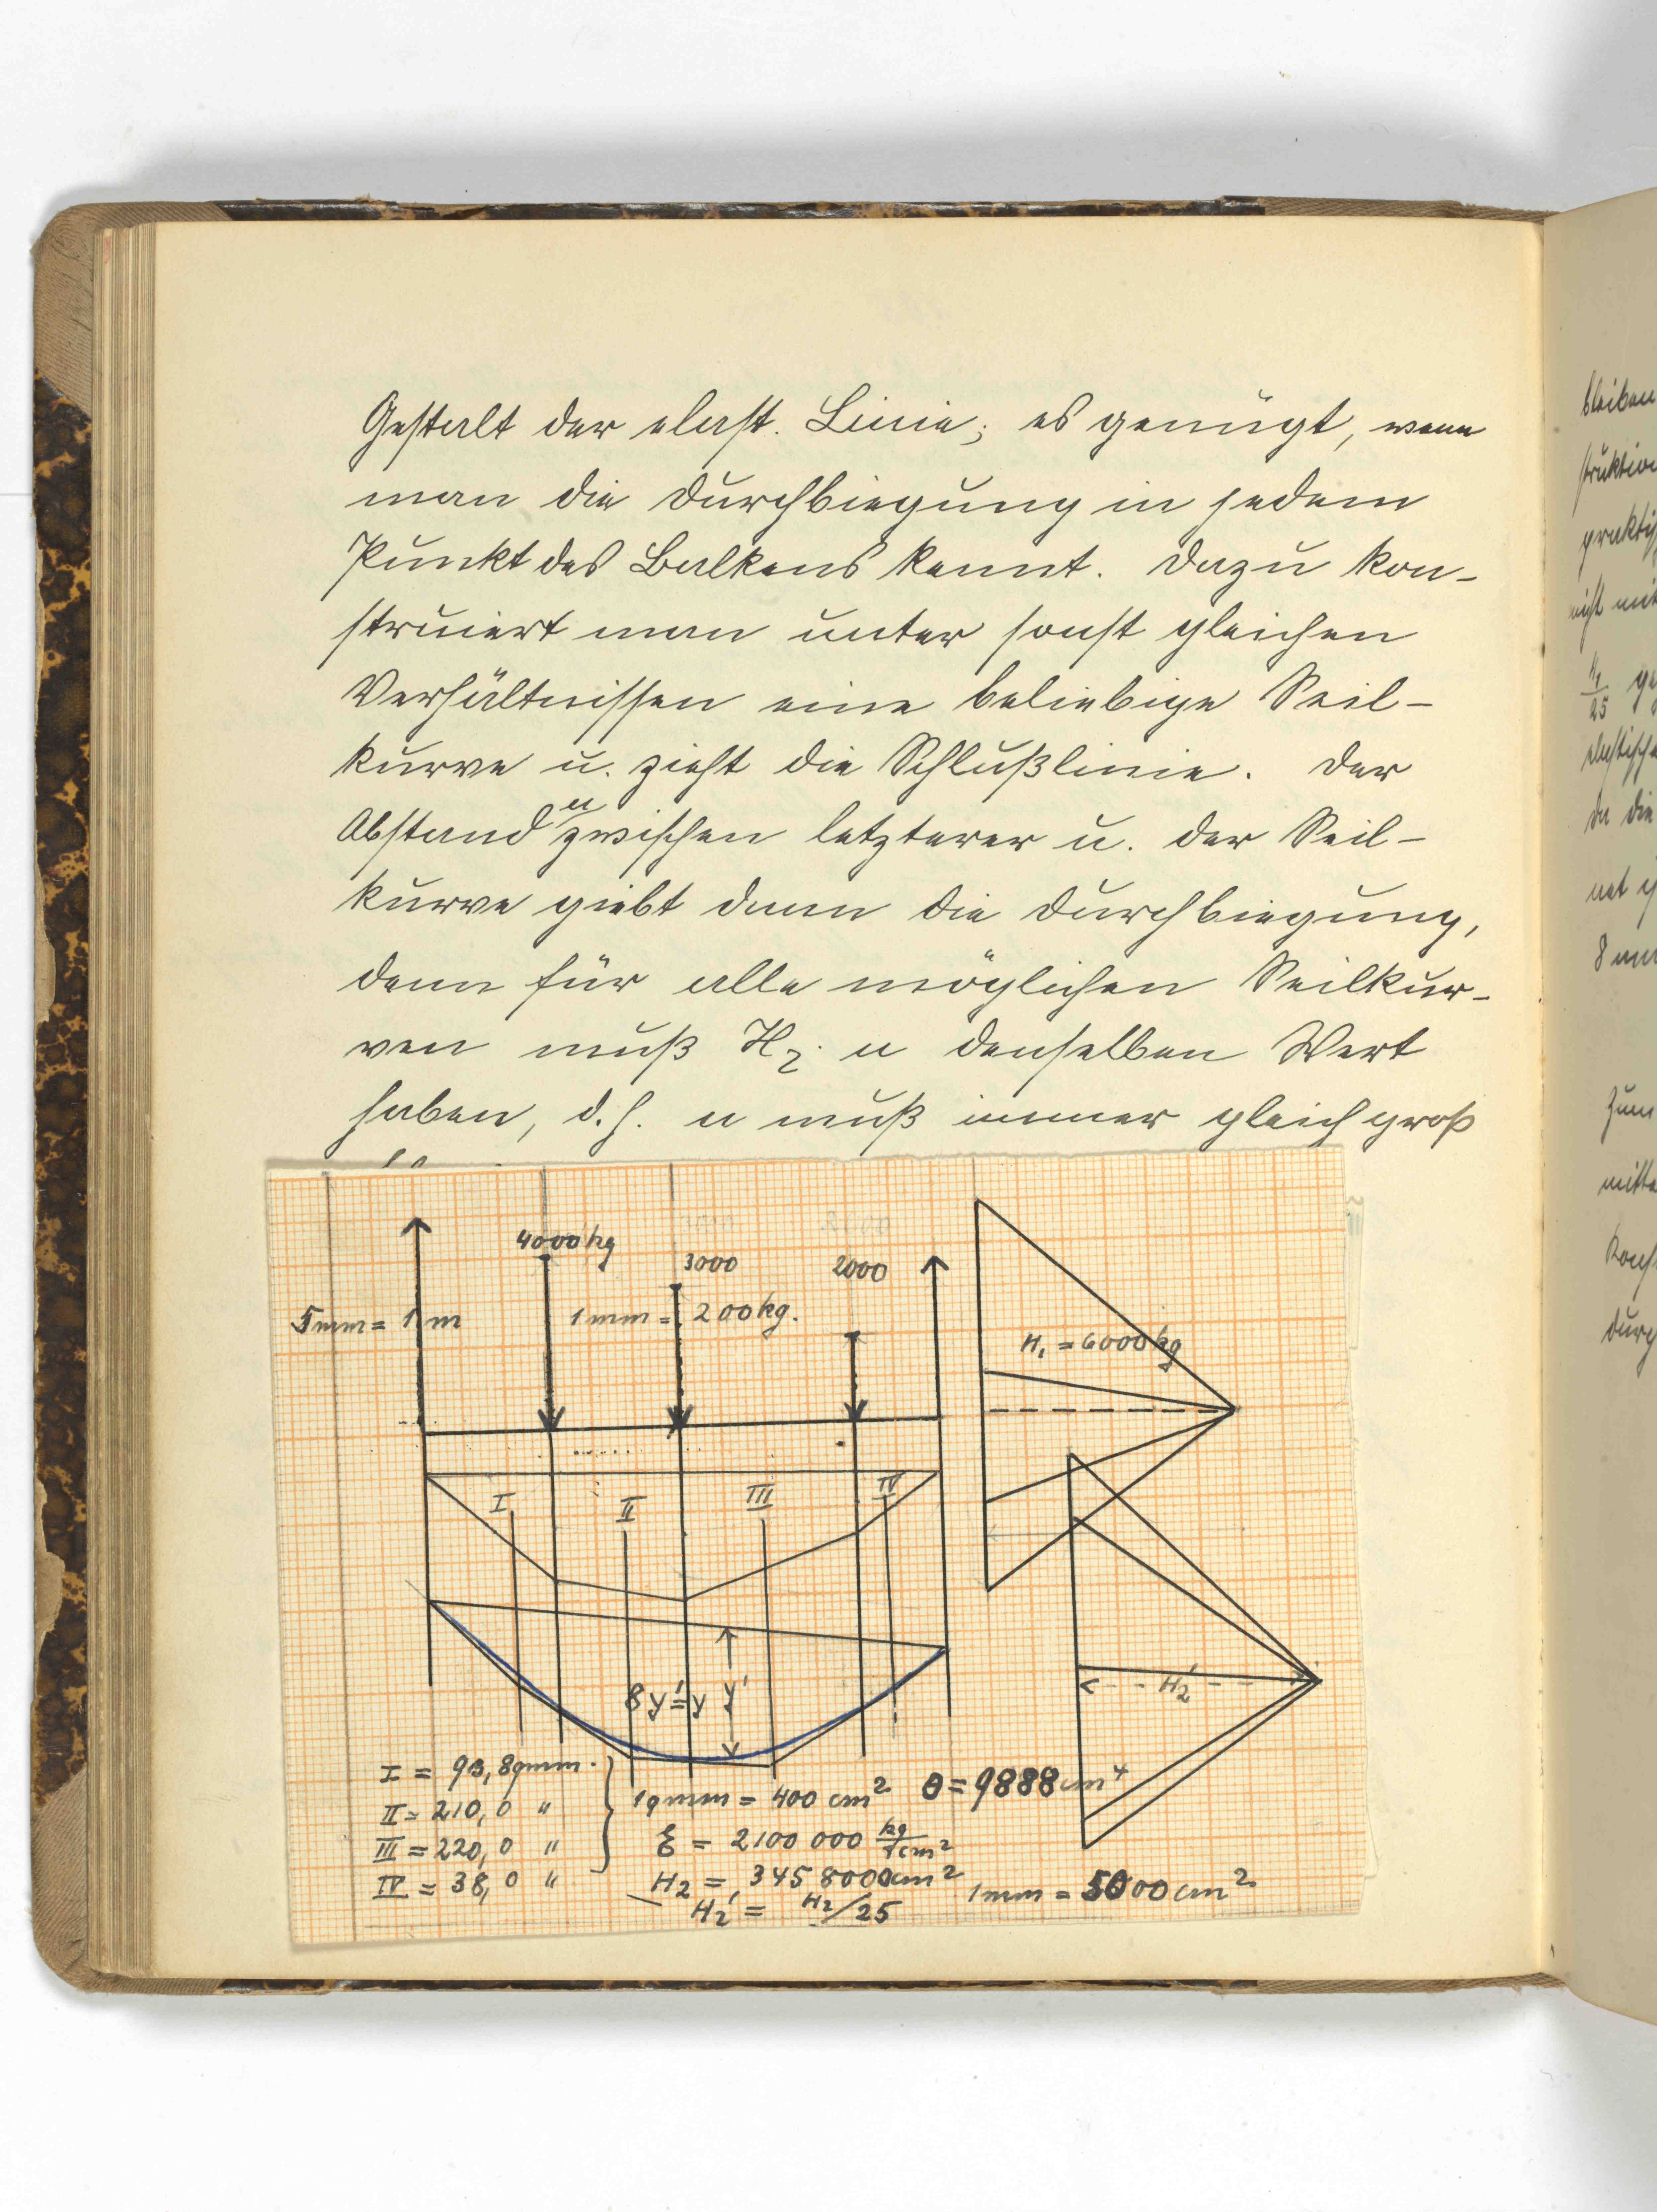 Gestalt der elast. Linie; es genügt, wenn
man die Durchbiegung in jedem
Punkt des Balkens kennt. Dazu kon-
struiert man unter sonst gleichen
Verhältnissen eine beliebige Seil-
kurve u. zieht die Schlußlinie. Der
Abstand u zwischen letzterer u. der Seil-
kurve giebt dann die Durchbiegung,
denn für alle möglichen Seilkur-
ven muß H2 · u denselben Wert
haben, d. h. u muß immer gleich groß
4000 kg
3000
2000
5 mm = 1 m
1 mm = 200 kg.
H1 = 6000 kg
I
II
III
IV
8y' = y
y'
H2'
I = 93,8 qmm.
II = 210,0 "
III = 220,0 "
IV = 38,0 "
1 qmm = 400 cm²
θ = 9888 cm⁴
ε = 2100 000 kg/cm²
H2 = 345 8000 cm²
H2' = H2/25
1 mm = 5000 cm²
bleiben
struktion
praktis
nicht mit
H2/25
elastische
da die
8 mm
Zum
mitte
Kons
durch